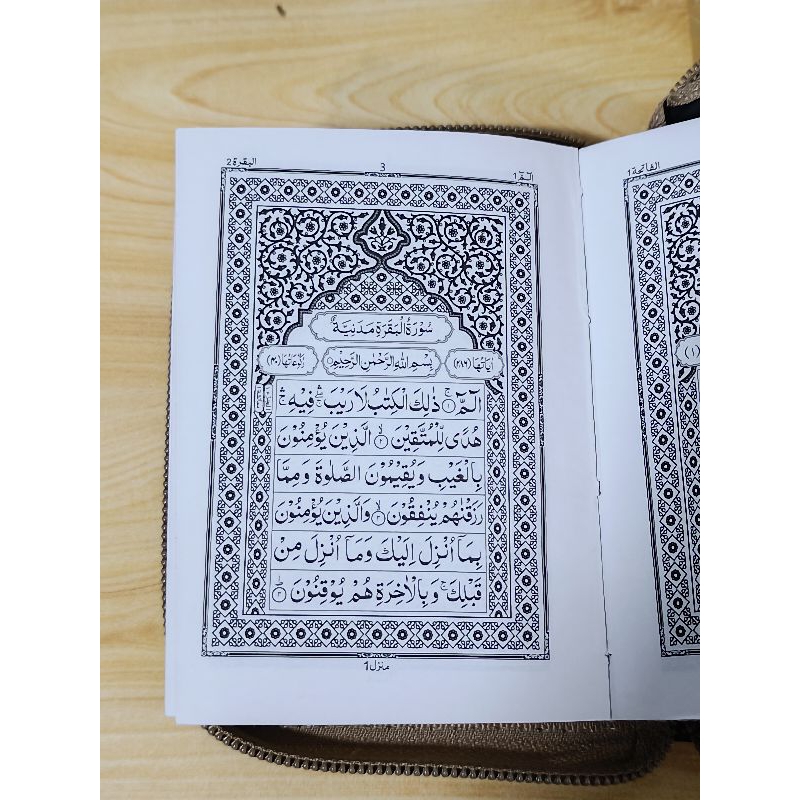 البقرة 2
3
الٓمّٓ 1
الفاتحة 1
سُوْرَةُ الْبَقَرَةِ مَدَنِيَّةٌ
اٰیَاتُهَا (۲۸۶)
بِسْمِ اللهِ الرَّحْمٰنِ الرَّحِيْمِ
رُكُوْعَاتُهَا (۴۰)
(۱)
الٓمّٓ ۚ﴿۱﴾ ذٰلِكَ الْكِتٰبُ لَا رَيْبَ ۛۖۚ فِيْهِ ۛۚ
هُدًى لِّلْمُتَّقِيْنَ ۙ﴿۲﴾ الَّذِيْنَ يُؤْمِنُوْنَ
بِالْغَيْبِ وَيُقِيْمُوْنَ الصَّلٰوةَ وَمِمَّا
رَزَقْنٰهُمْ يُنْفِقُوْنَ ۙ﴿۳﴾ وَالَّذِيْنَ يُؤْمِنُوْنَ
بِمَاۤ اُنْزِلَ اِلَيْكَ وَمَاۤ اُنْزِلَ مِنْ
قَبْلِكَ ۚ وَبِالْاٰخِرَةِ هُمْ يُوْقِنُوْنَ ؕ﴿۴﴾
منزل 1